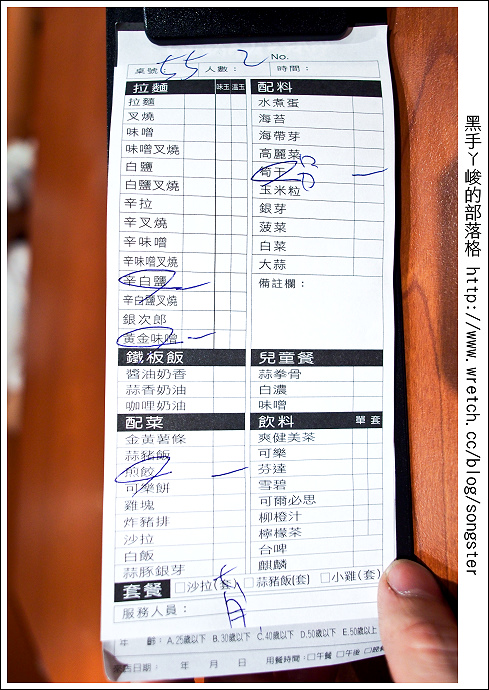 桌號 55 人數: 2 時間: No.
拉麵 味玉 溫玉
拉麵
叉燒
味噌
味噌叉燒
白鹽
白鹽叉燒
辛拉
辛叉燒
辛味噌
辛味噌叉燒
辛白鹽 一
辛白鹽叉燒
銀次郎
黃金味噌 一
配料
水煮蛋
海苔
海帶芽
高麗菜
筍干 一
玉米粒
銀芽
菠菜
白菜
大蒜
備註欄:
鐵板飯
醬油奶香
蒜香奶油
咖哩奶油
兒童餐
蒜拳骨
白濃
味噌
配菜
金黃薯條
蒜豬飯
煎餃 一
可樂餅
雞塊
炸豬排
沙拉
白飯
蒜豚銀芽
飲料 單 套
爽健美茶
可樂
芬達
雪碧
可爾必思
柳橙汁
檸檬茶
台啤
麒麟
套餐 □沙拉(套) □蒜豬飯(套) □小雞(套)
服務人員:
年 齡: A.25歲以下 B.30歲以下 C.40歲以下 D.50歲以下 E.50歲以上
來店日期: 年 月 日 用餐時間: □午餐 □午後
黑手ㄚ峻的部落格 http://www.wretch.cc/blog/songster